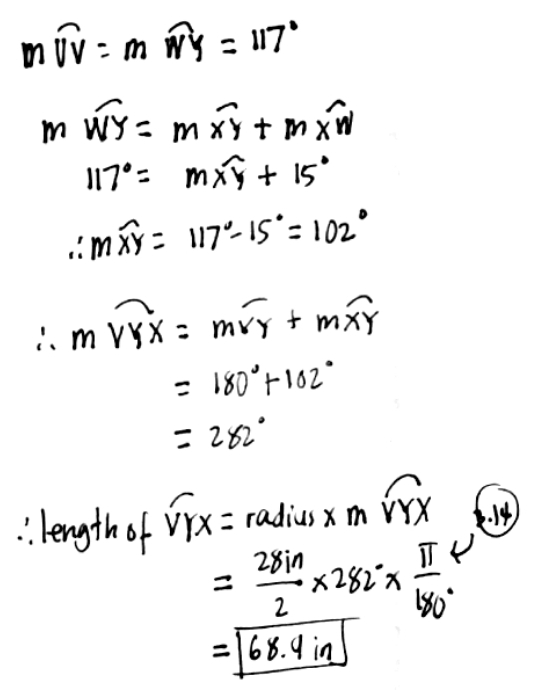 m UV = m WY = 117°
m WY = m XY + m XW
117° = m XY + 15°
∴ m XY = 117° - 15° = 102°
∴ m VYX = m VY + m XY
= 180° + 102°
= 282°
∴ length of VYX = radius x m VYX
= 28in/2 x 282° x π/180° ← 3.14
= 68.9 in